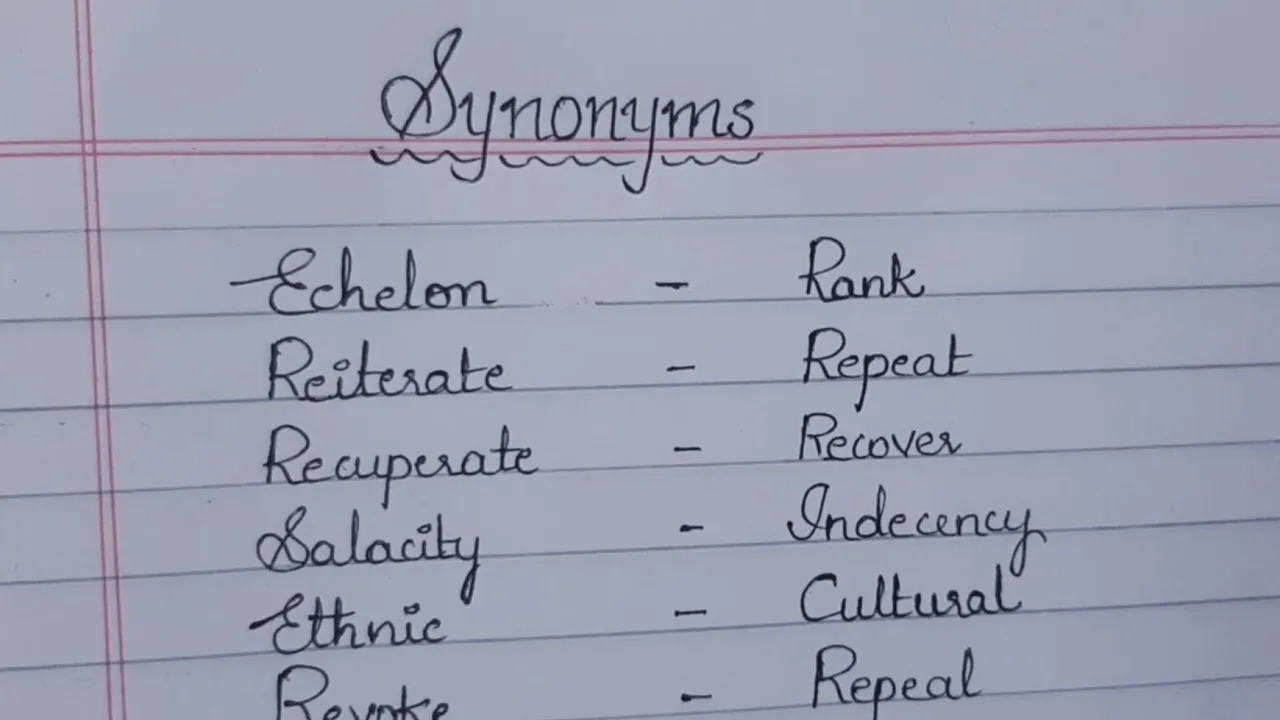 Synonyms
Echelon - Rank
Reiterate - Repeat
Recuperate - Recover
Salacity - Indecency
Ethnic - Cultural
Revoke - Repeal